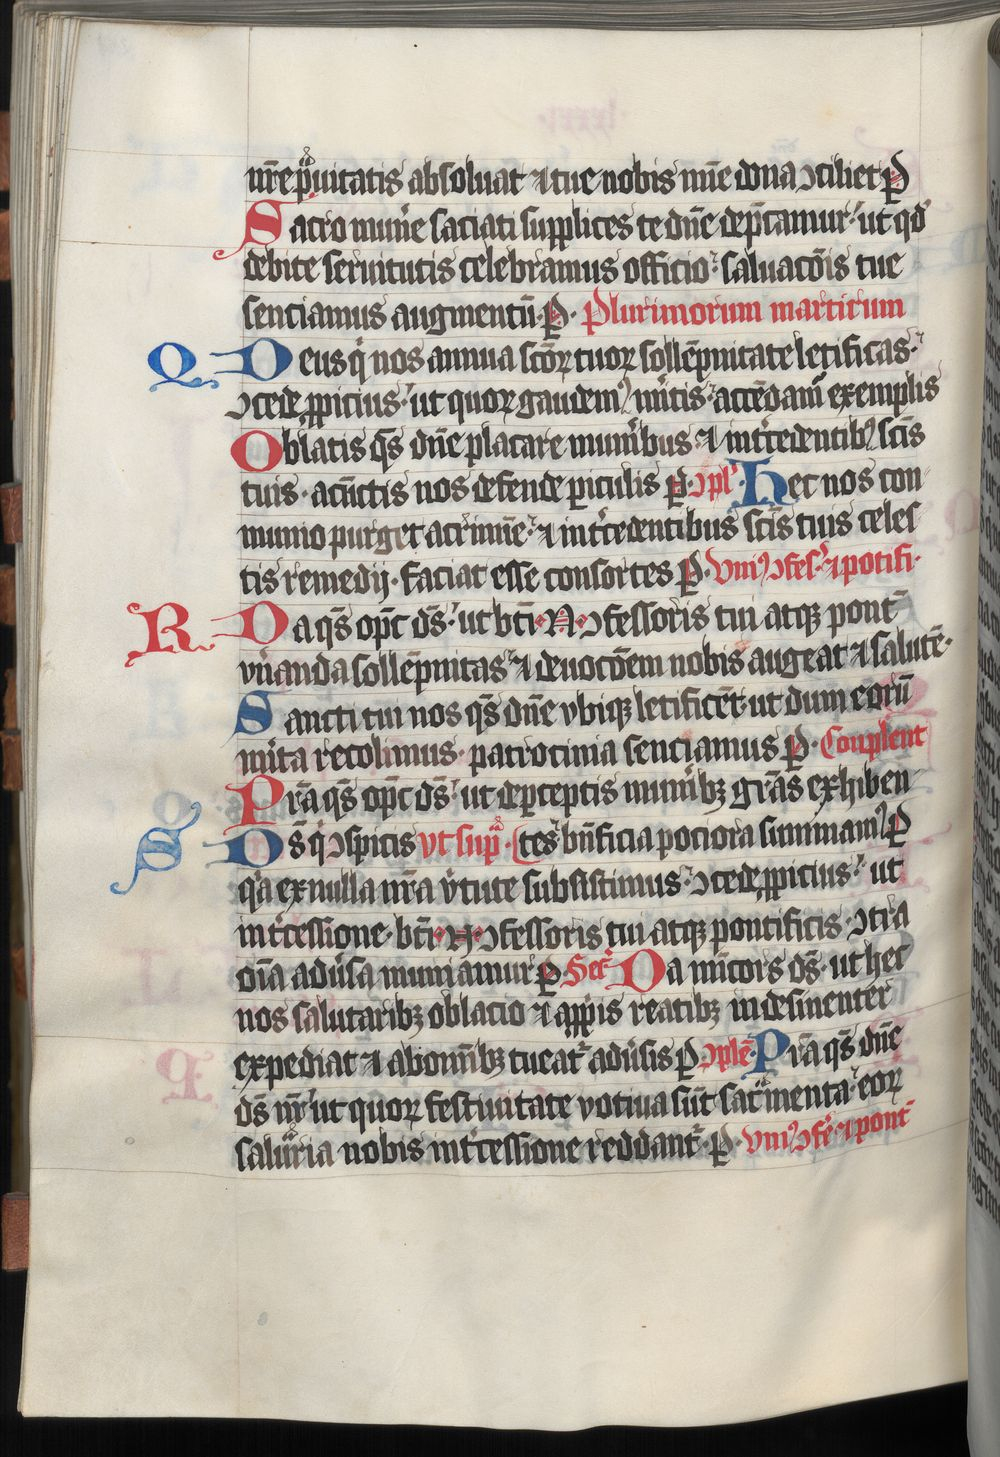 nr̄e p̄uitatis absoluat ⁊ tue nobis mīe dona ↄciliet ꝑ
Sacro mun̄e saciati supplices te dn̄e dep̄camur ut qd̛
debite seruitutis celebramus officio saluac̄ois tue
senciamus augmentū ꝑ Plurimorum martirum
Q Deus q nos annua sc̄oꝝ tuoꝝ sollēpnitate letificas
ↄcede ꝓpicius ut quoꝝ gaudemꝰ mitis accēdam̄ exemplis
Oblatis qs̄ dn̄e placare munībus ⁊ int̄cedentibꝰ sc̄is
tuis a cūctis nos defende ꝑiculis ꝑ ↄpl Hec nos con
munio purget a crīmīe ⁊ int̄cedentibus sc̄is tuis celes
tis remedij faciat esse consortes ꝑ Vniꝰ ↄfes ⁊ potifi
R Da qs̄ op̄c ds̄ ut bt̄i N ↄfessoris tui atqꝫ pont̄
vn̄anda sollēpnitas ⁊ deuoc̄oem nobis augeat ⁊ salutē
Sancti tui nos qs̄ dn̄e vbiqꝫ letificēt ut dum eorū
mita recolimus patrocinia senciamus ꝑ Conplent
Pr̄a qs̄ op̄c ds̄ ut de ꝑceptis munībꝫ gr̄as exhiben
S Ds̄ q ↄspicis vt sup̄ tes bn̄ficia pociora sumamꝰ ꝑ
qa ex nulla nr̄a v̄tute subsistimus ↄcede ꝓpicius ut
int̄cessione bt̄i N ↄfessoris tui atqꝫ pontificis ↄtra
oīa adūsa muniamur ꝑ Secͬ Da mīcors ds̄ ut hec
nos salutaribꝫ oblacio ⁊ a ꝓpīis reatibꝫ indesinenter
expediat ⁊ ab omībꝫ tueatͬ adūsis ꝑ ↄplē Pr̄a qs̄ dn̄e
ds̄ nr̄ ut quoꝝ festiuitate votiua sūt sac̄menta eoꝝ
salūria nobis int̄cessione reddantͬ ꝑ Vniꝰ ↄfe ⁊ pont̄